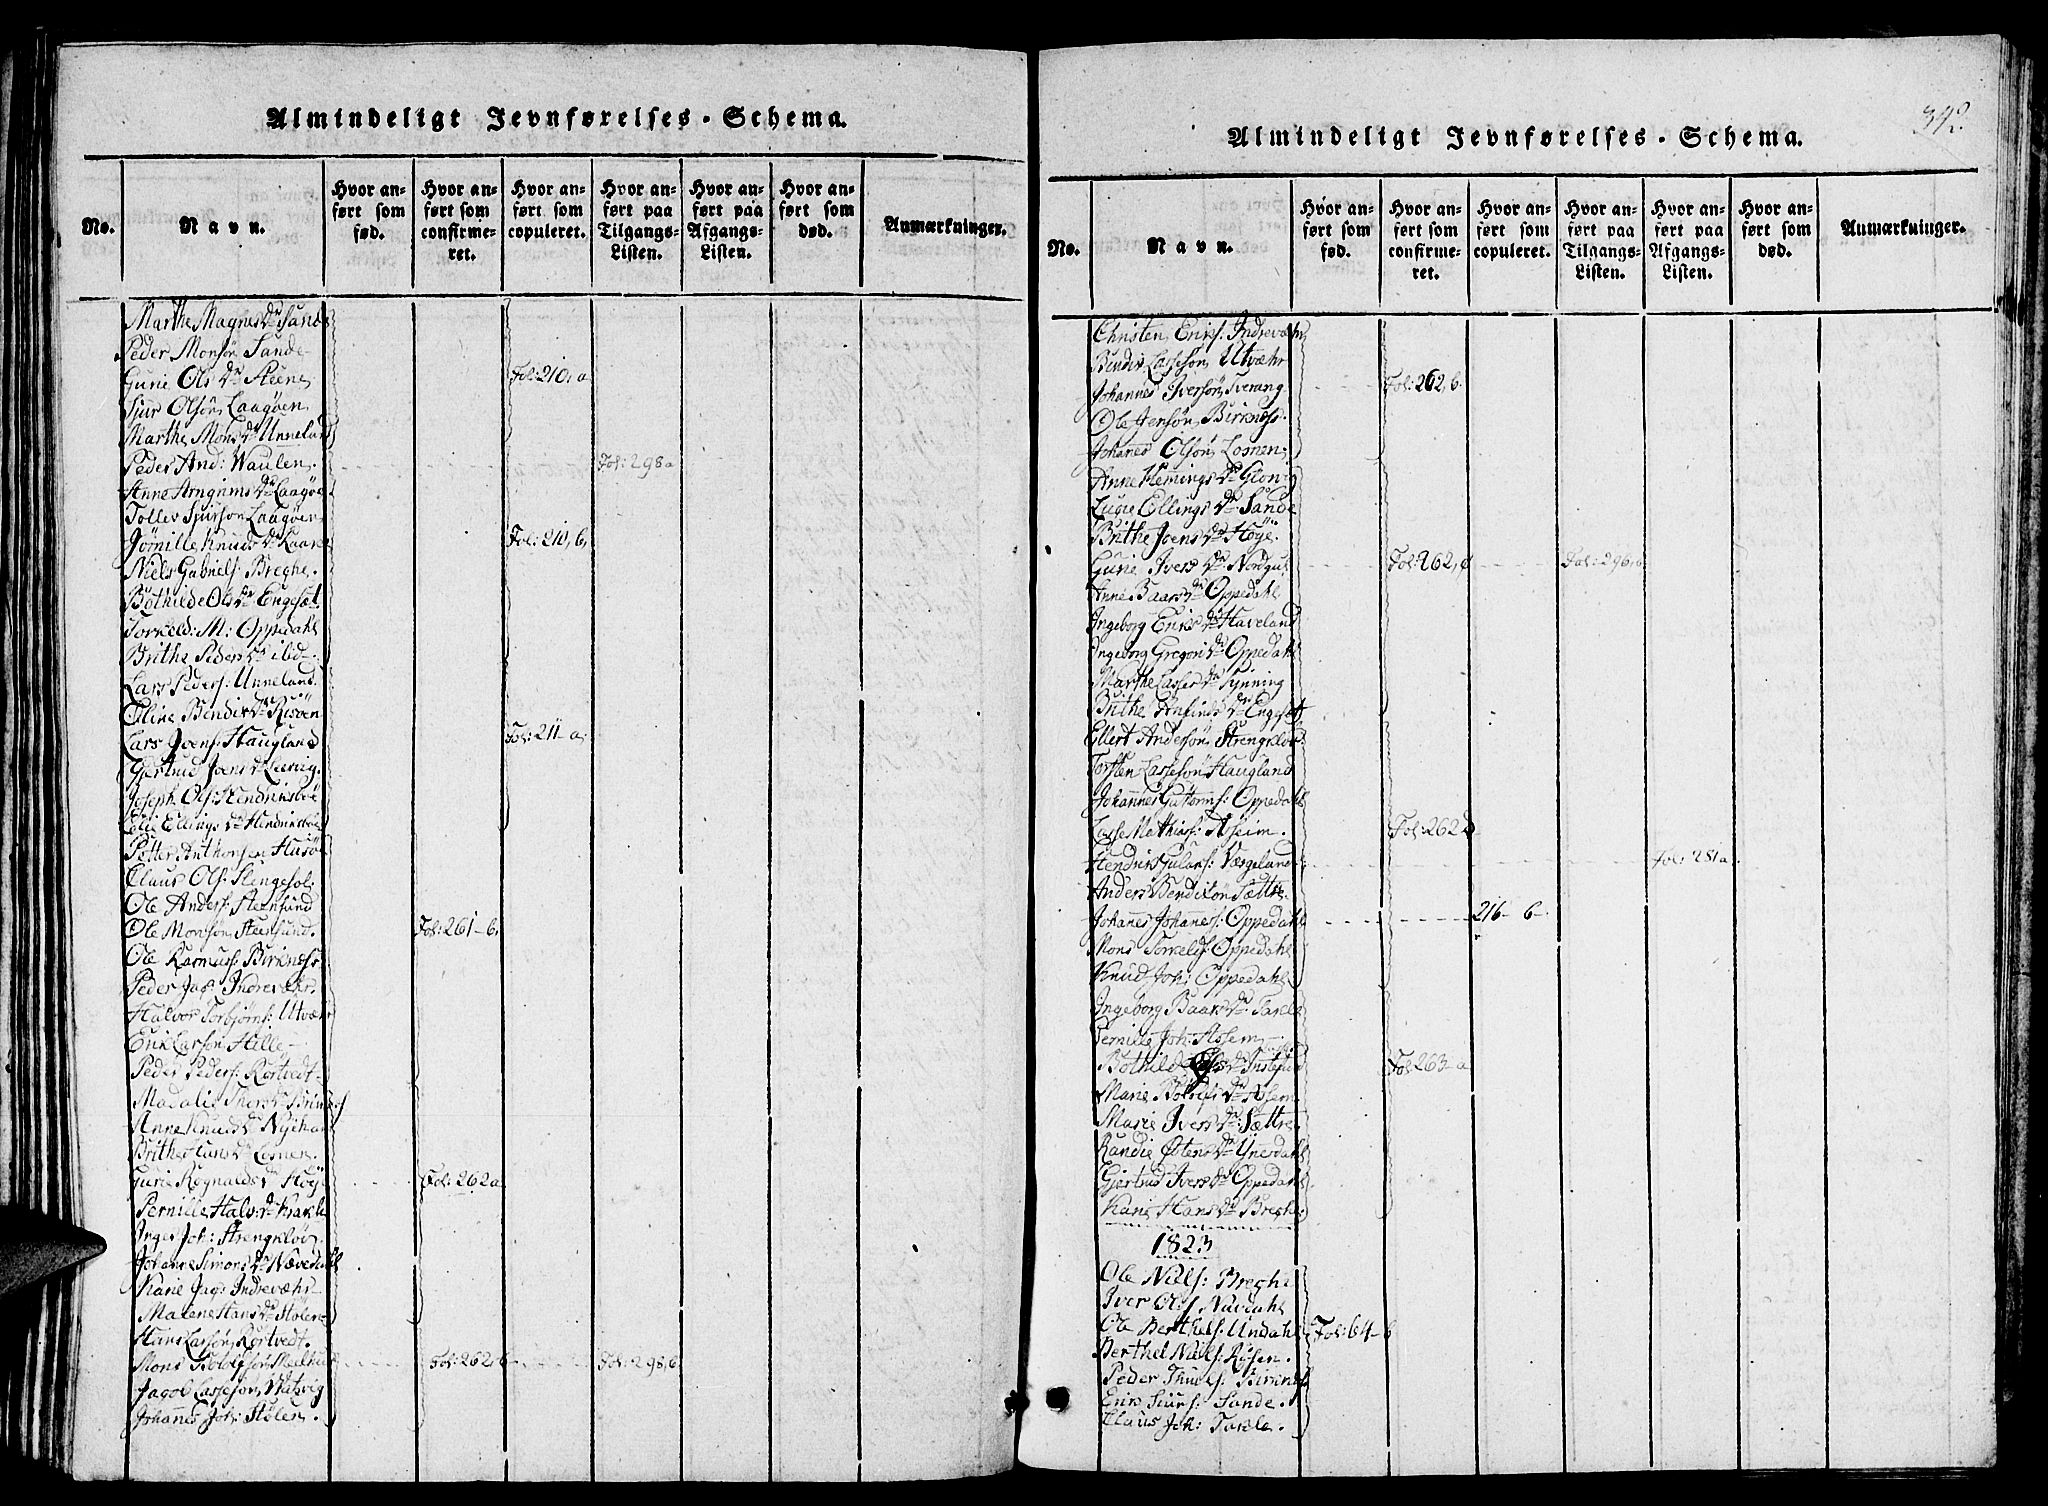 Almindeligt Jevnførelses-Schema.
No.
Navn.
Hvor anført som fød.
Hvor anført som confirmeret.
Hvor anført som copuleret.
Hvor anført paa Tilgangs-Listen.
Hvor anført paa Afgangs-Listen.
Hvor anført som død.
Anmærkninger.
Marthe Magnes Dr Sande
Peder Monsön Sande
Gurie Ols Dr Steene Fol: 210, a
Siur Olsön Laagöen
Marthe Mons Dr Unneland
Peder And: Waulen. Fol: 298 a
Anne Arngrims Dr Laagöe
Tollev Siurson Laagöen
Jörnille Knuds Dr Kaare Fol: 210, b,
Niels Gabriels: Breche.
Böthilde Ols Dr Engesæt
Torkeld: M: Oppedahl
Brithe Peders Dr ibid
Lars Peders: Unneland.
Eline Bendix Dr Risöen
Lars Joens: Haugland Fol: 211 - a.
Giertrud Joens Dr Leevig.
Joseph Ols: Hendriksböe
Celie Ellings Dr Hendriksböe
Petter Anthonsen Husö
Claus Ols: Stengesöl.
Ole Anders: Steensund
Ole Monsön Steensund. Fol: 261 - b,
Ole Rasmuss: Birknæss
Peder Jac: Indrevæhr.
Halvor Torbjörns: Utvær
Erik Larsön Hille
Peder Peders: Röstvedt
Madalie Thors Dr Brinæs
Anne Knuds Dr Nyihar
Brithe Hans Dr Losnen.
Gurie Rognalds Dr Höye Fol: 262 a
Pernille Halv: Dr Krakle
Inger Joh: Strengklöv.
Johanne Simons Dr Nævedahl
Karie Jac: Indrevæhr
Malene Hans Dr Stölen
Hans Larsön Röstvedt.
Mons Botolfsön Melhus Fol: 262, b Fol: 298, b
Jacob Lassesön Wadvig
Johannes Joh: Stölen.
342.
Almindeligt Jevnførelses-Schema.
No.
Navn.
Hvor anført som fød.
Hvor anført som confirmeret.
Hvor anført som copuleret.
Hvor anført paa Tilgangs-Listen.
Hvor anført paa Afgangs-Listen.
Hvor anført som død.
Anmærkninger.
Christen Eriks: Indrevæhr
Bendix Lassesön Utvæhr
Johannes Iversön Tverang Fol: 262, b.
Ole Jensön Birknæss.
Johanes Olsön Losnen
Anne Flemings Dr Glonig
Lucie Ellings Dr Sande
Brithe Joens Dr Höye.
Gurie Ivers Dr Nordgul Fol: 262, c Fol: 296, b
Anne Baars Dr Oppedahl
Ingeborg Eriks Dr Haveland
Ingeborg Gregori Dr Oppedahl
Marthe Lasses Dr Tynning
Brithe Anfinds Dr Engesæt
Ellert Andersön Strengklöv
Torsten Lassesön Haugland
Johannes Guttorms: Oppedahl
Lasse Mathias: Asheim. Fol: 262 d
Hendrik Julans: Værgeland Fol: 281 a
Anders Bendixön Sættre.
Johanes Johannes: Oppedahl 216 - b -
Mons Torkelds: Oppedahl
Knud Joh: Oppedahl
Ingeborg Baars Dr Takle
Pernille Joh: Assem
Böthild Ols Dr Instefiord Fol: 263 - a
Marie Botolfs Dr Assem
Marie Ivers Dr Sættre
Randie Östens Dr Ynesdahl
Giertrud Ivers Dr Oppedahl
Karie Hans Dr Breche
1823
Ole Niels: Breche
Iver Ols: Navdahl
Ole Berthels: Undahl Fol: 64 - b
Berthel Niels: Risen.
Peder Thues: Birknes
Erik Siurs: Sande.
Claus Joh: Takle.